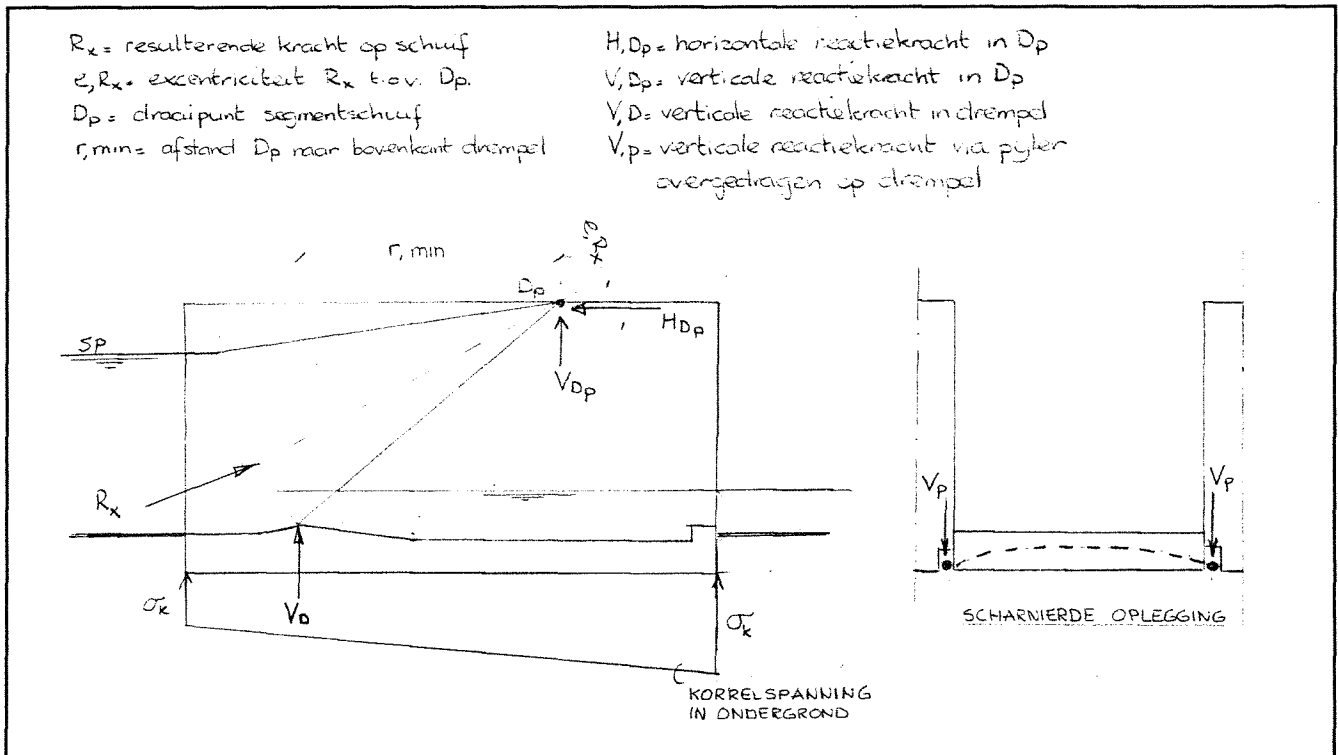 Rx = resulterende kracht op schuif
e,Rx = excentriciteit Rx t.o.v. Dp.
Dp = draaipunt segmentschuif
r,min = afstand Dp naar bovenkant drempel
H,Dp = horizontale reactiekracht in Dp
V,Dp = verticale reactiekracht in Dp
V,D = verticale reactiekracht in drempel
V,p = verticale reactiekracht via pijler
overgedragen op drempel
r,min
e,Rx
Dp
HDp
SP
VDp
Rx
Vp
Vp
σk
VD
σk
SCHARNIERDE OPLEGGING
KORRELSPANNING
IN ONDERGROND